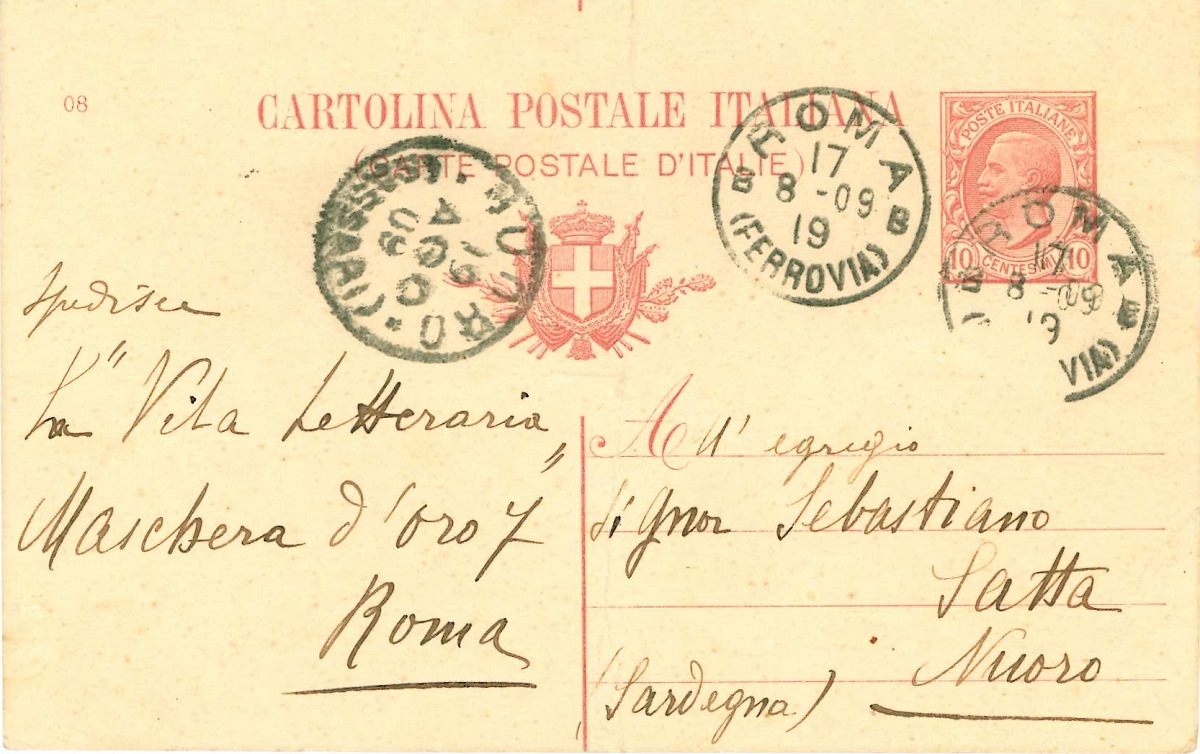 08
CARTOLINA POSTALE ITALIANA
(CARTE POSTALE D'ITALIE)
POSTE ITALIANE
10 CENTESIMI 10
ROMA
17
8 -09
19
B B
(FERROVIA)
OMA
17
8 -09
19
VIA)
NUORO
19
AGO
09
(SASSARI)
Spedisce
La "Vita Letteraria"
Maschera d'oro 7
Roma
All' egregio
Signor Sebastiano
Satta
Nuoro
(Sardegna)